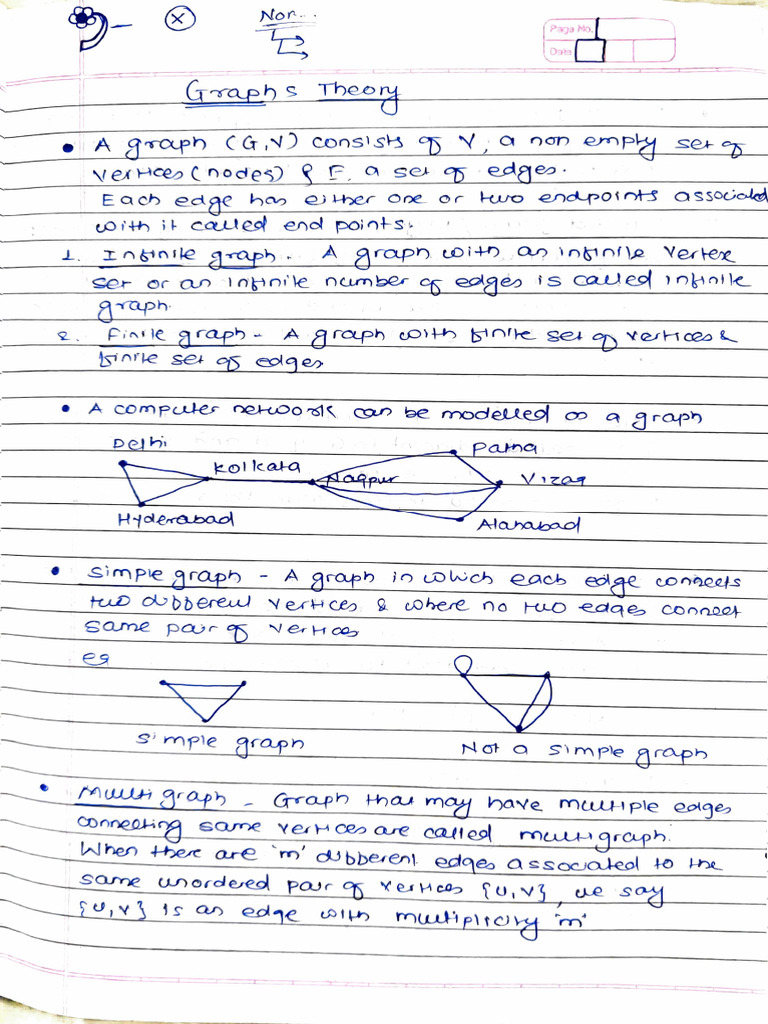 Nor...
Page No.
Date
Graphs Theory
• A graph (G,V) consists of V, a non empty set of
vertices (nodes) & E, a set of edges.
Each edge has either one or two endpoints associated
with it called end points.
1. Infinite graph. A graph with an infinite vertex
set or an infinite number of edges is called infinite
graph.
2. Finite graph - A graph with finite set of vertices &
finite set of edges
• A computer network can be modelled as a graph
Delhi Patna
Kolkata Nagpur Vizag
Hyderabad Alahabad
• Simple graph - A graph in which each edge connects
two different vertices & where no two edges connect
same pair of vertices
eg
Simple graph Not a simple graph
• Multi graph - Graph that may have multiple edges
connecting same vertices are called multigraph.
When there are 'm' different edges associated to the
same unordered pair of vertices {u,v}, we say
{u,v} is an edge with multiplicity 'm'